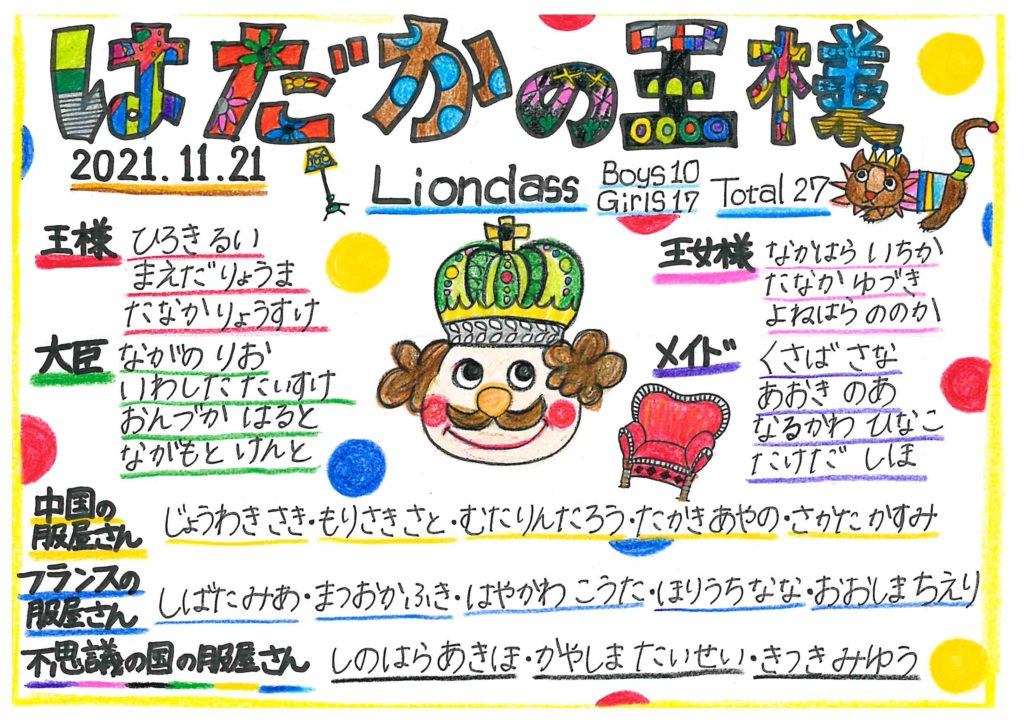 はだかの王様
2021.11.21
Lionclass
Boys10
Girls17
Total 27
王様 ひろき るい
まえだ りょうま
たなか りょうすけ
大臣 ながの りお
いわした たいすけ
おんづか はると
ながもと けんと
王女様 なかはら いちか
たなか ゆづき
よねはら ののか
メイド くさば さな
あおき のあ
なるかわ ひなこ
たけだ しほ
中国の
服屋さん じょうわき さき・もりさき さと・むた りんたろう・たかき あやの・さかた かすみ
フランスの
服屋さん しばた みあ・まつおか ふき・はやかわ こうた・ほりうち なな・おおしま ちえり
不思議の国の服屋さん しのはら あきほ・かやしま たいせい・きつき みゆう